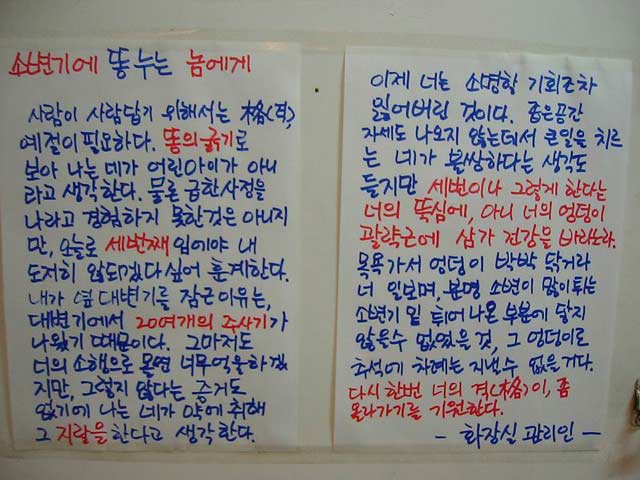 소변기에 똥 누는 놈에게
사람이 사람답기 위해서는 格(격),
예절이 필요하다. 똥의 굵기로
보아 나는 네가 어린아이가 아니
라고 생각한다. 물론 급한사정을
나라고 경험하지 못한것은 아니지
만, 오늘로 세번째 임에야 내
도저히 않되겠다 싶어 훈계한다.
내가 옆 대변기를 잠근 이유는,
대변기에서 20여개의 주사기가
나왔기 때문이다. 그마저도
너의 소행으로 몰면 너무억울하겠
지만, 그렇지 않다는 증거도
없기에 나는 네가 약에 취해
그 지랄을한다고 생각한다.
이제 너는 소명할 기회조차
잃어버린 것이다. 좁은공간
자세도 나오지 않는데서 큰일을 치르
는 네가 불쌍하다는 생각도
들지만 세번이나 그렇게 한다는
너의 뚝심에, 아니 너의 엉덩이
괄략근에 삼가 건강을 바라노라.
목욕가서 엉덩이 박박 닦거라
너 일보며, 분명 소변이 많이튀는
소변기 밑 튀어나온 부분에 닿지
않을수 없었을 것, 그 엉덩이로
추석에 차례는 지낼수 없을거다.
다시한번 너의 격(格)이, 좀
올라가기를 기원한다.
- 화장실 관리인 -